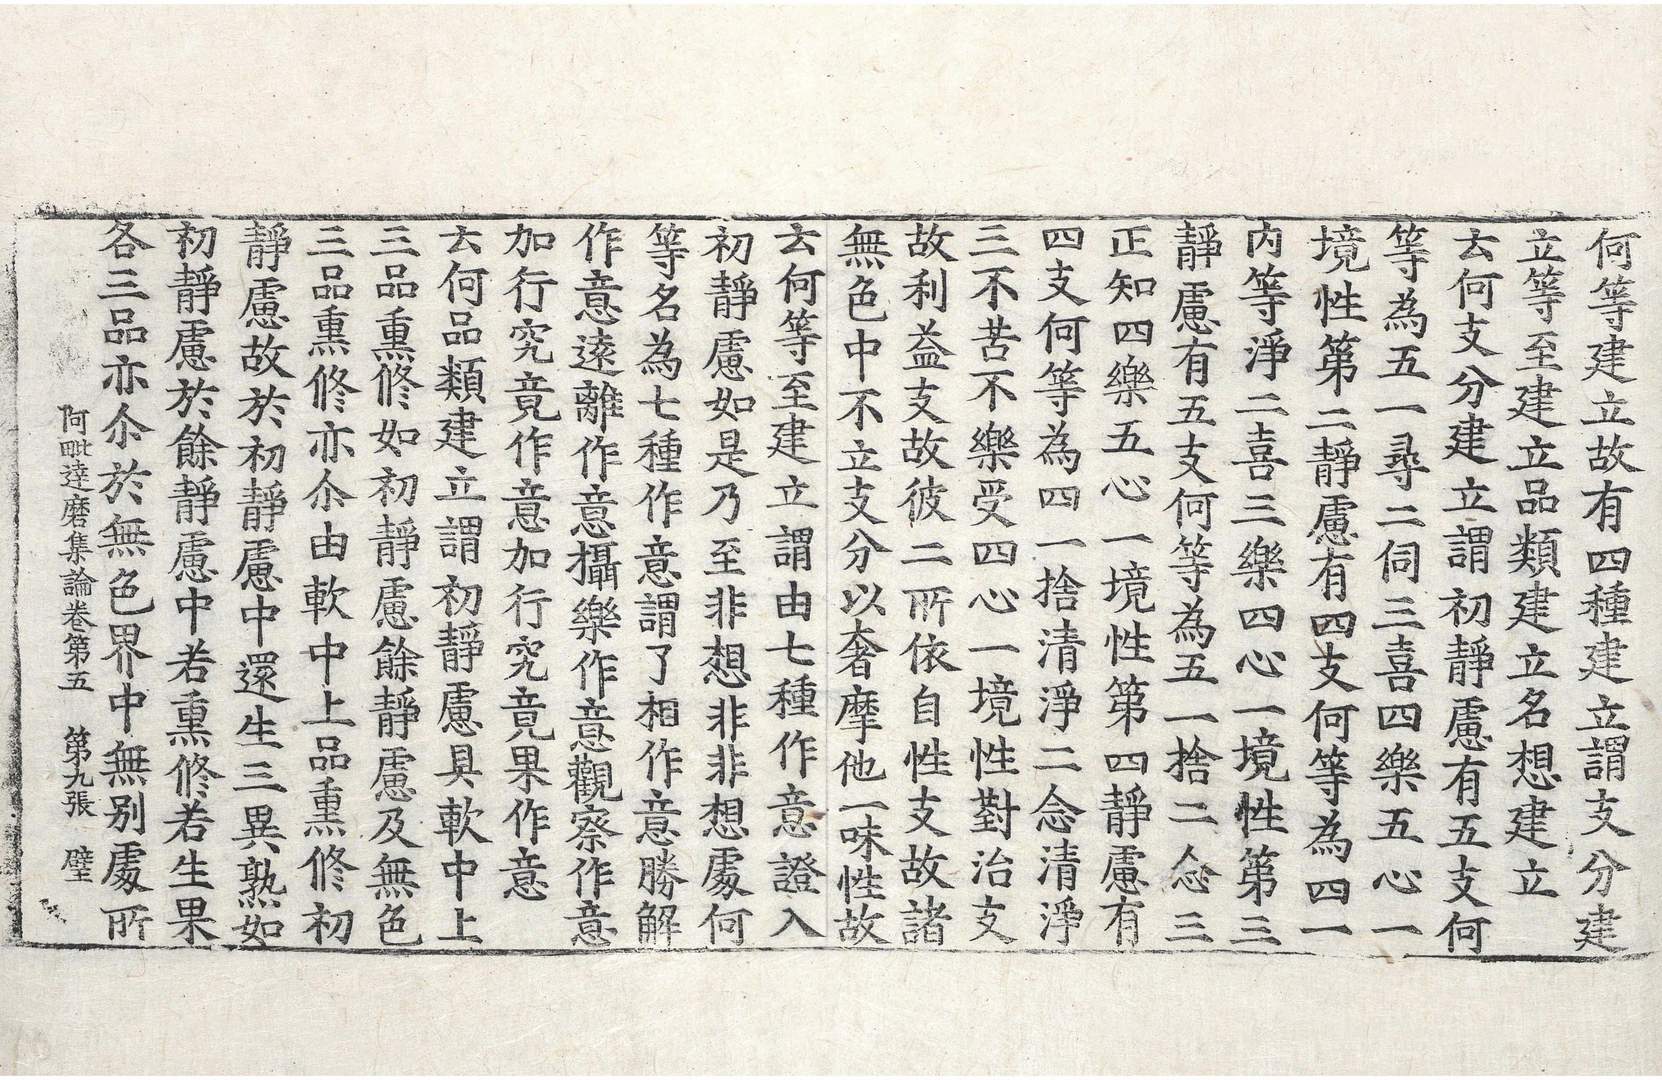 何等建立故有四種建立謂支分建
立等至建立品類建立名想建立
云何支分建立謂初靜慮有五支何
等為五一尋二伺三喜四樂五心一
境性第二靜慮有四支何等為四一
內等淨二喜三樂四心一境性第三
靜慮有五支何等為五一捨二念三
正知四樂五心一境性第四靜慮有
四支何等為四一捨清淨二念清淨
三不苦不樂受四心一境性對治支
故利益支故彼二所依自性支故諸
無色中不立支分以奢摩他一味性故
云何等至建立謂由七種作意證入
初靜慮如是乃至非想非非想處何
等名為七種作意謂了相作意勝解
作意遠離作意攝樂作意觀察作意
加行究竟作意加行究竟果作意
云何品類建立謂初靜慮具軟中上
三品熏修如初靜慮餘靜慮及無色
三品熏修亦尒由軟中上品熏修初
靜慮故於初靜慮中還生三異熟如
初靜慮於餘靜慮中若熏修若生果
各三品亦尒於無色界中無別處所
阿毗達磨集論卷第五 第九張 璧